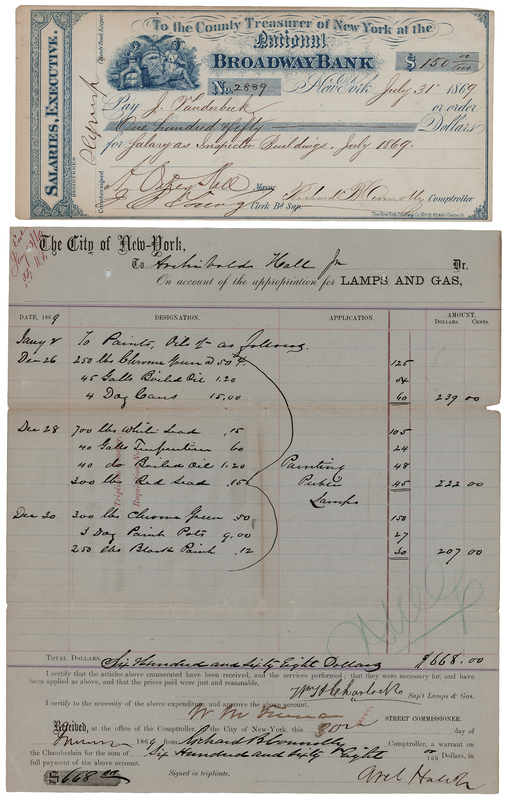 To the County Treasurer of New York at the
National
BROADWAY BANK
$ 150 00/100
No. 2889 New York July 31st 1869
Pay J. Vanderbeck or order
One hundred fifty Dollars
for Salary as Inspector Buildings, July 1869.
A. Oakey Hall Mayor Richard B. Connolly Comptroller
Clerk Bd Sup.
SALARIES, EXECUTIVE.
REGISTERED
Countersigned
The City of New-York,
To Archibald Hall Jr Dr.
On account of the appropriation for LAMPS AND GAS,
DATE, 1869 DESIGNATION. APPLICATION. AMOUNT.
DOLLARS. CENTS.
Jany 8 To Paints, Oils &c as follows,
Dec 26 250 lbs Chrome Green @ 50 125
45 Galls Boiled Oil 1.20 54
4 Doz Cans 15.00 60 239 00
Dec 28 700 lbs White Lead .15 105
40 Galls Turpentine 60 24
40 do Boiled Oil 1.20 Painting 48
300 lbs Red Lead .15 Public 45 222 00
Lamps
Dec 30 300 lbs Chrome Green 50 150
3 Doz Paint Pots 9.00 27
250 lbs Black Paint .12 30 207 00
TOTAL DOLLARS, Six Hundred and Sixty Eight Dollars $668.00
I certify that the articles above enumerated have been received, and the services performed; that they were necessary for, and have
been applied as above, and that the prices paid were just and reasonable.
Sup't Lamps & Gas.
I certify to the necessity of the above expenditure, and approve the account.
STREET COMMISSIONER.
Received, at the office of the Comptroller of the City of New-York, this day of
1869 from Richard B Connolly Comptroller, a warrant on
the Chamberlain for the sum of Six Hundred and Sixty Eight Dollars, in
full payment of the above account.
$668 00 Signed in triplicate.